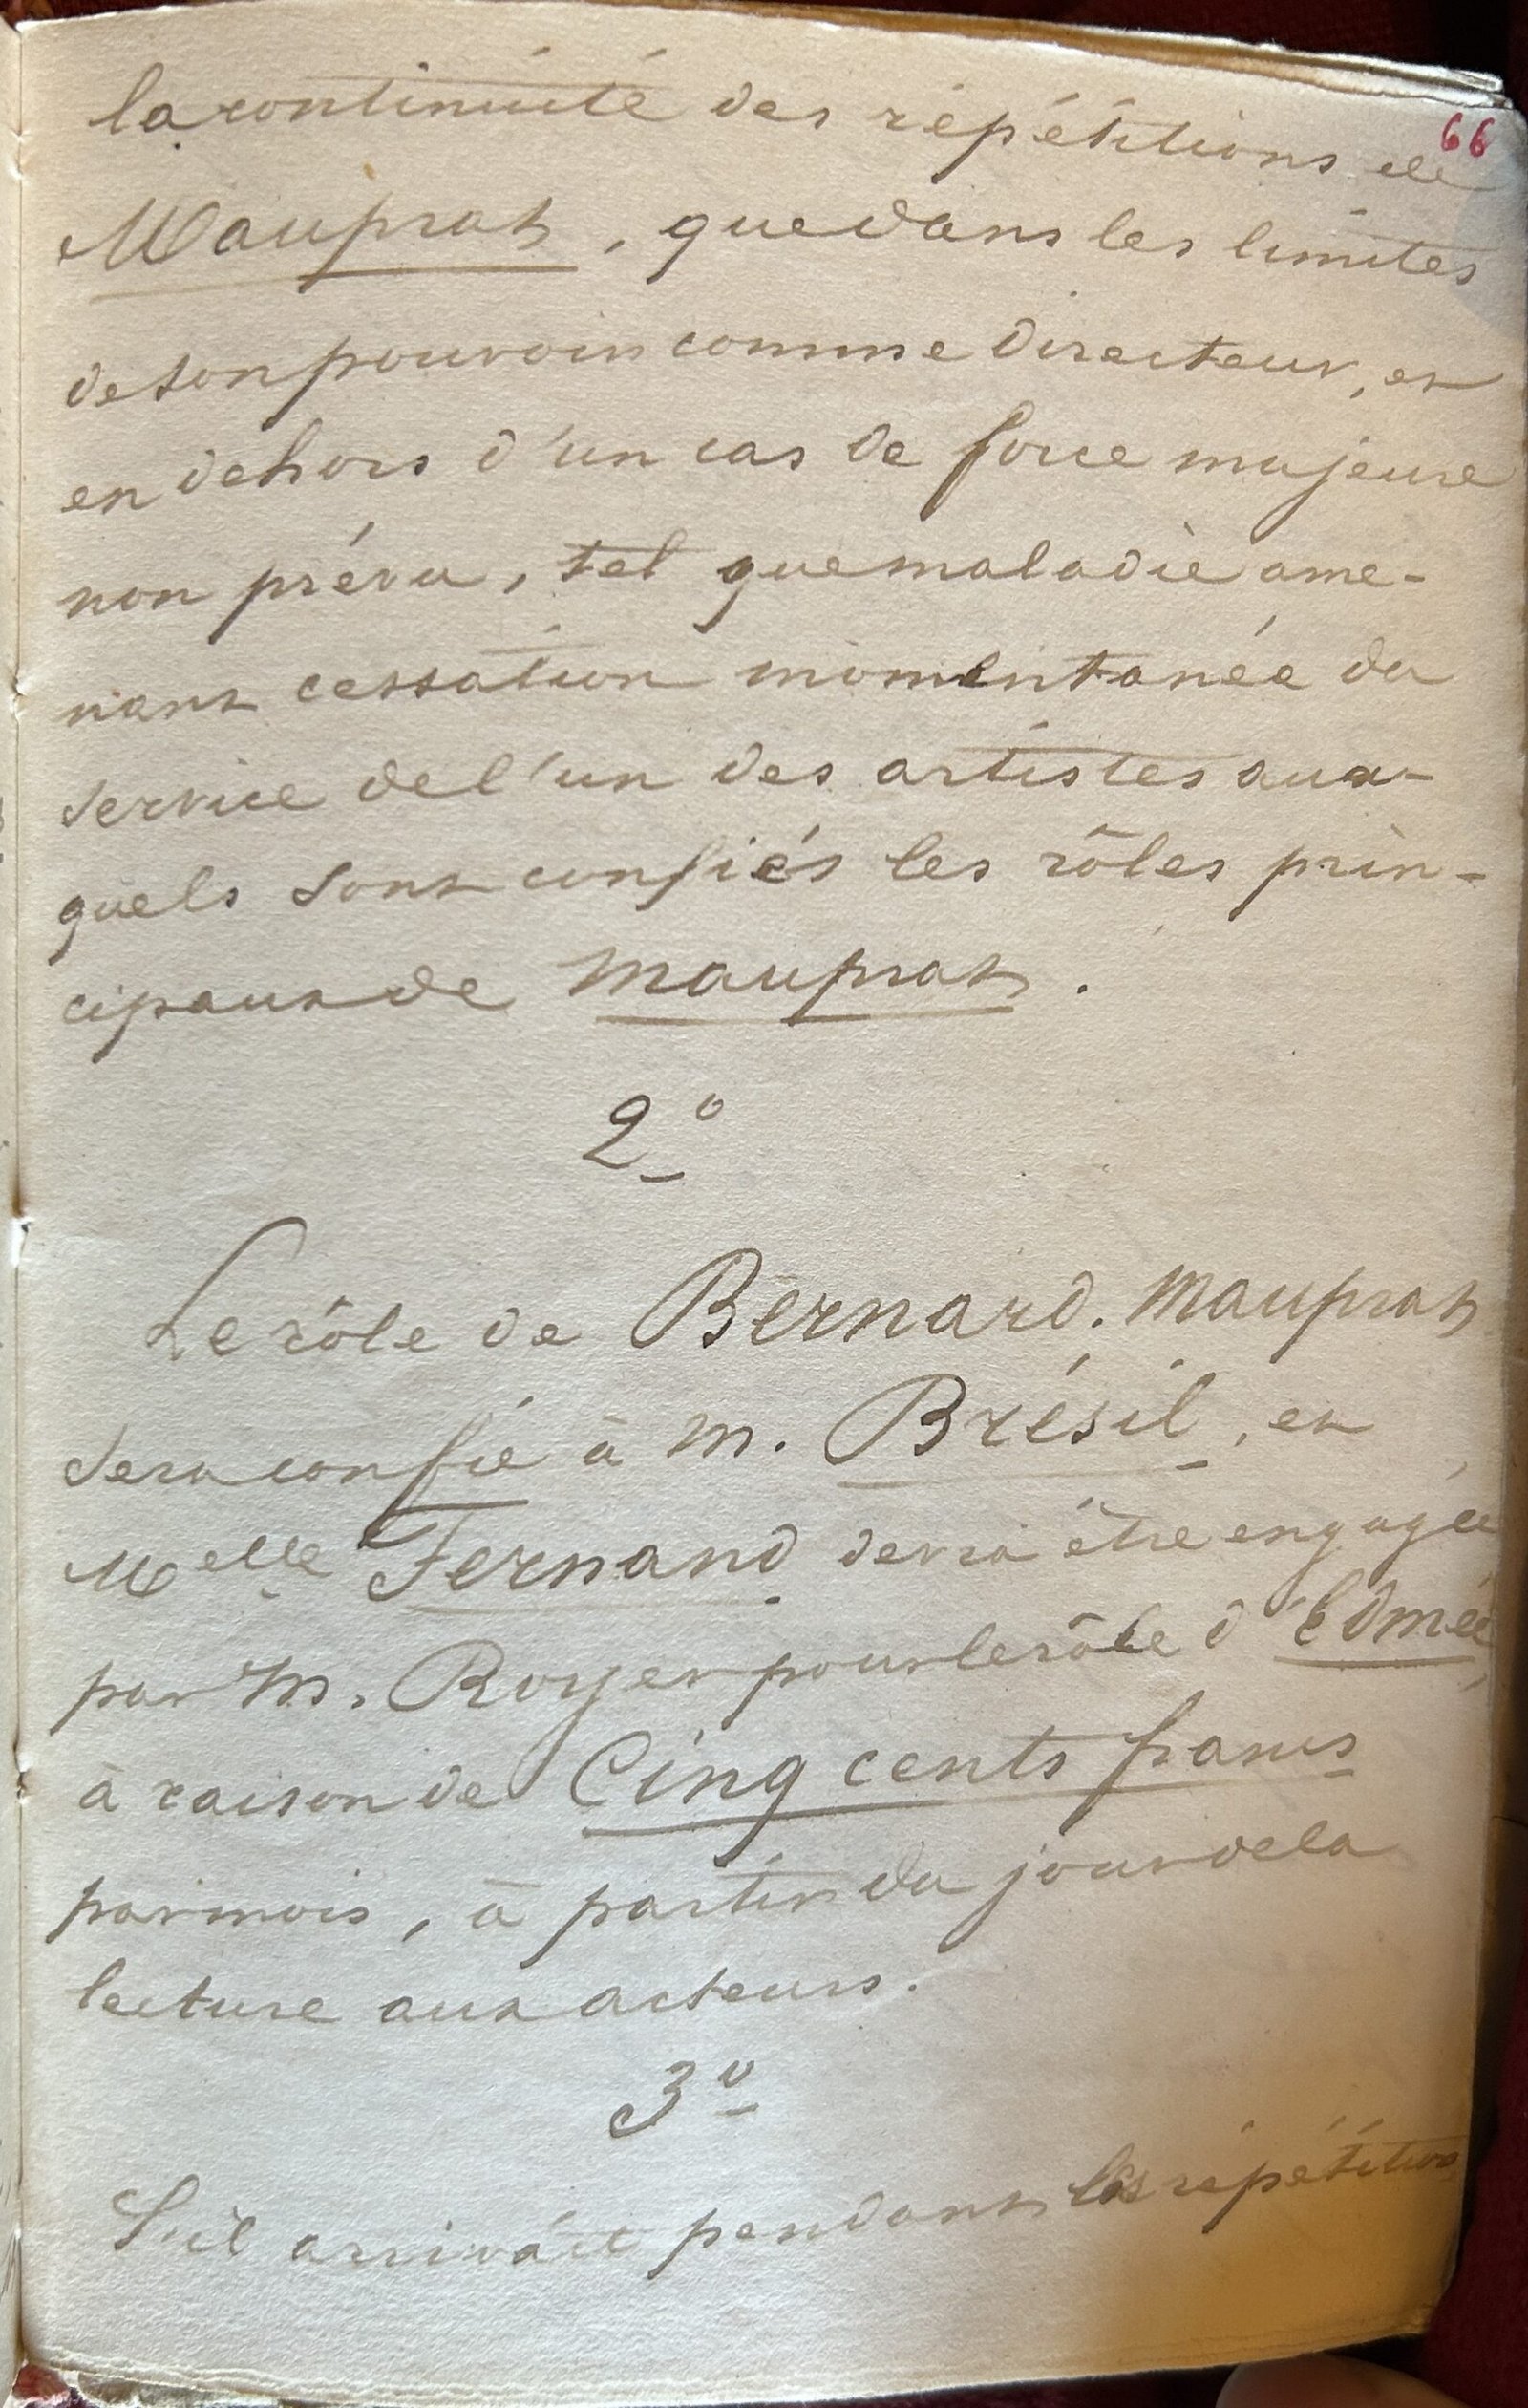 66
la continuité des répétitions de
Mauprat, que dans les limites
de son pouvoir comme directeur, et
en dehors d'un cas de force majeure
non prévu, tel que maladie ame-
nant cessation momentanée du
service de l'un des artistes aux-
quels sont confiés les rôles prin-
cipaux de Mauprat.
2°
Le rôle de Bernard. Mauprat
sera confié à M. Brésil, et
Melle Fernand devra être engagée
par M. Royer pour le rôle d'Edmée,
à raison de Cinq cents francs
par mois, à partir du jour de la
lecture aux acteurs.
3°
S'il arrivait pendant les répétitions